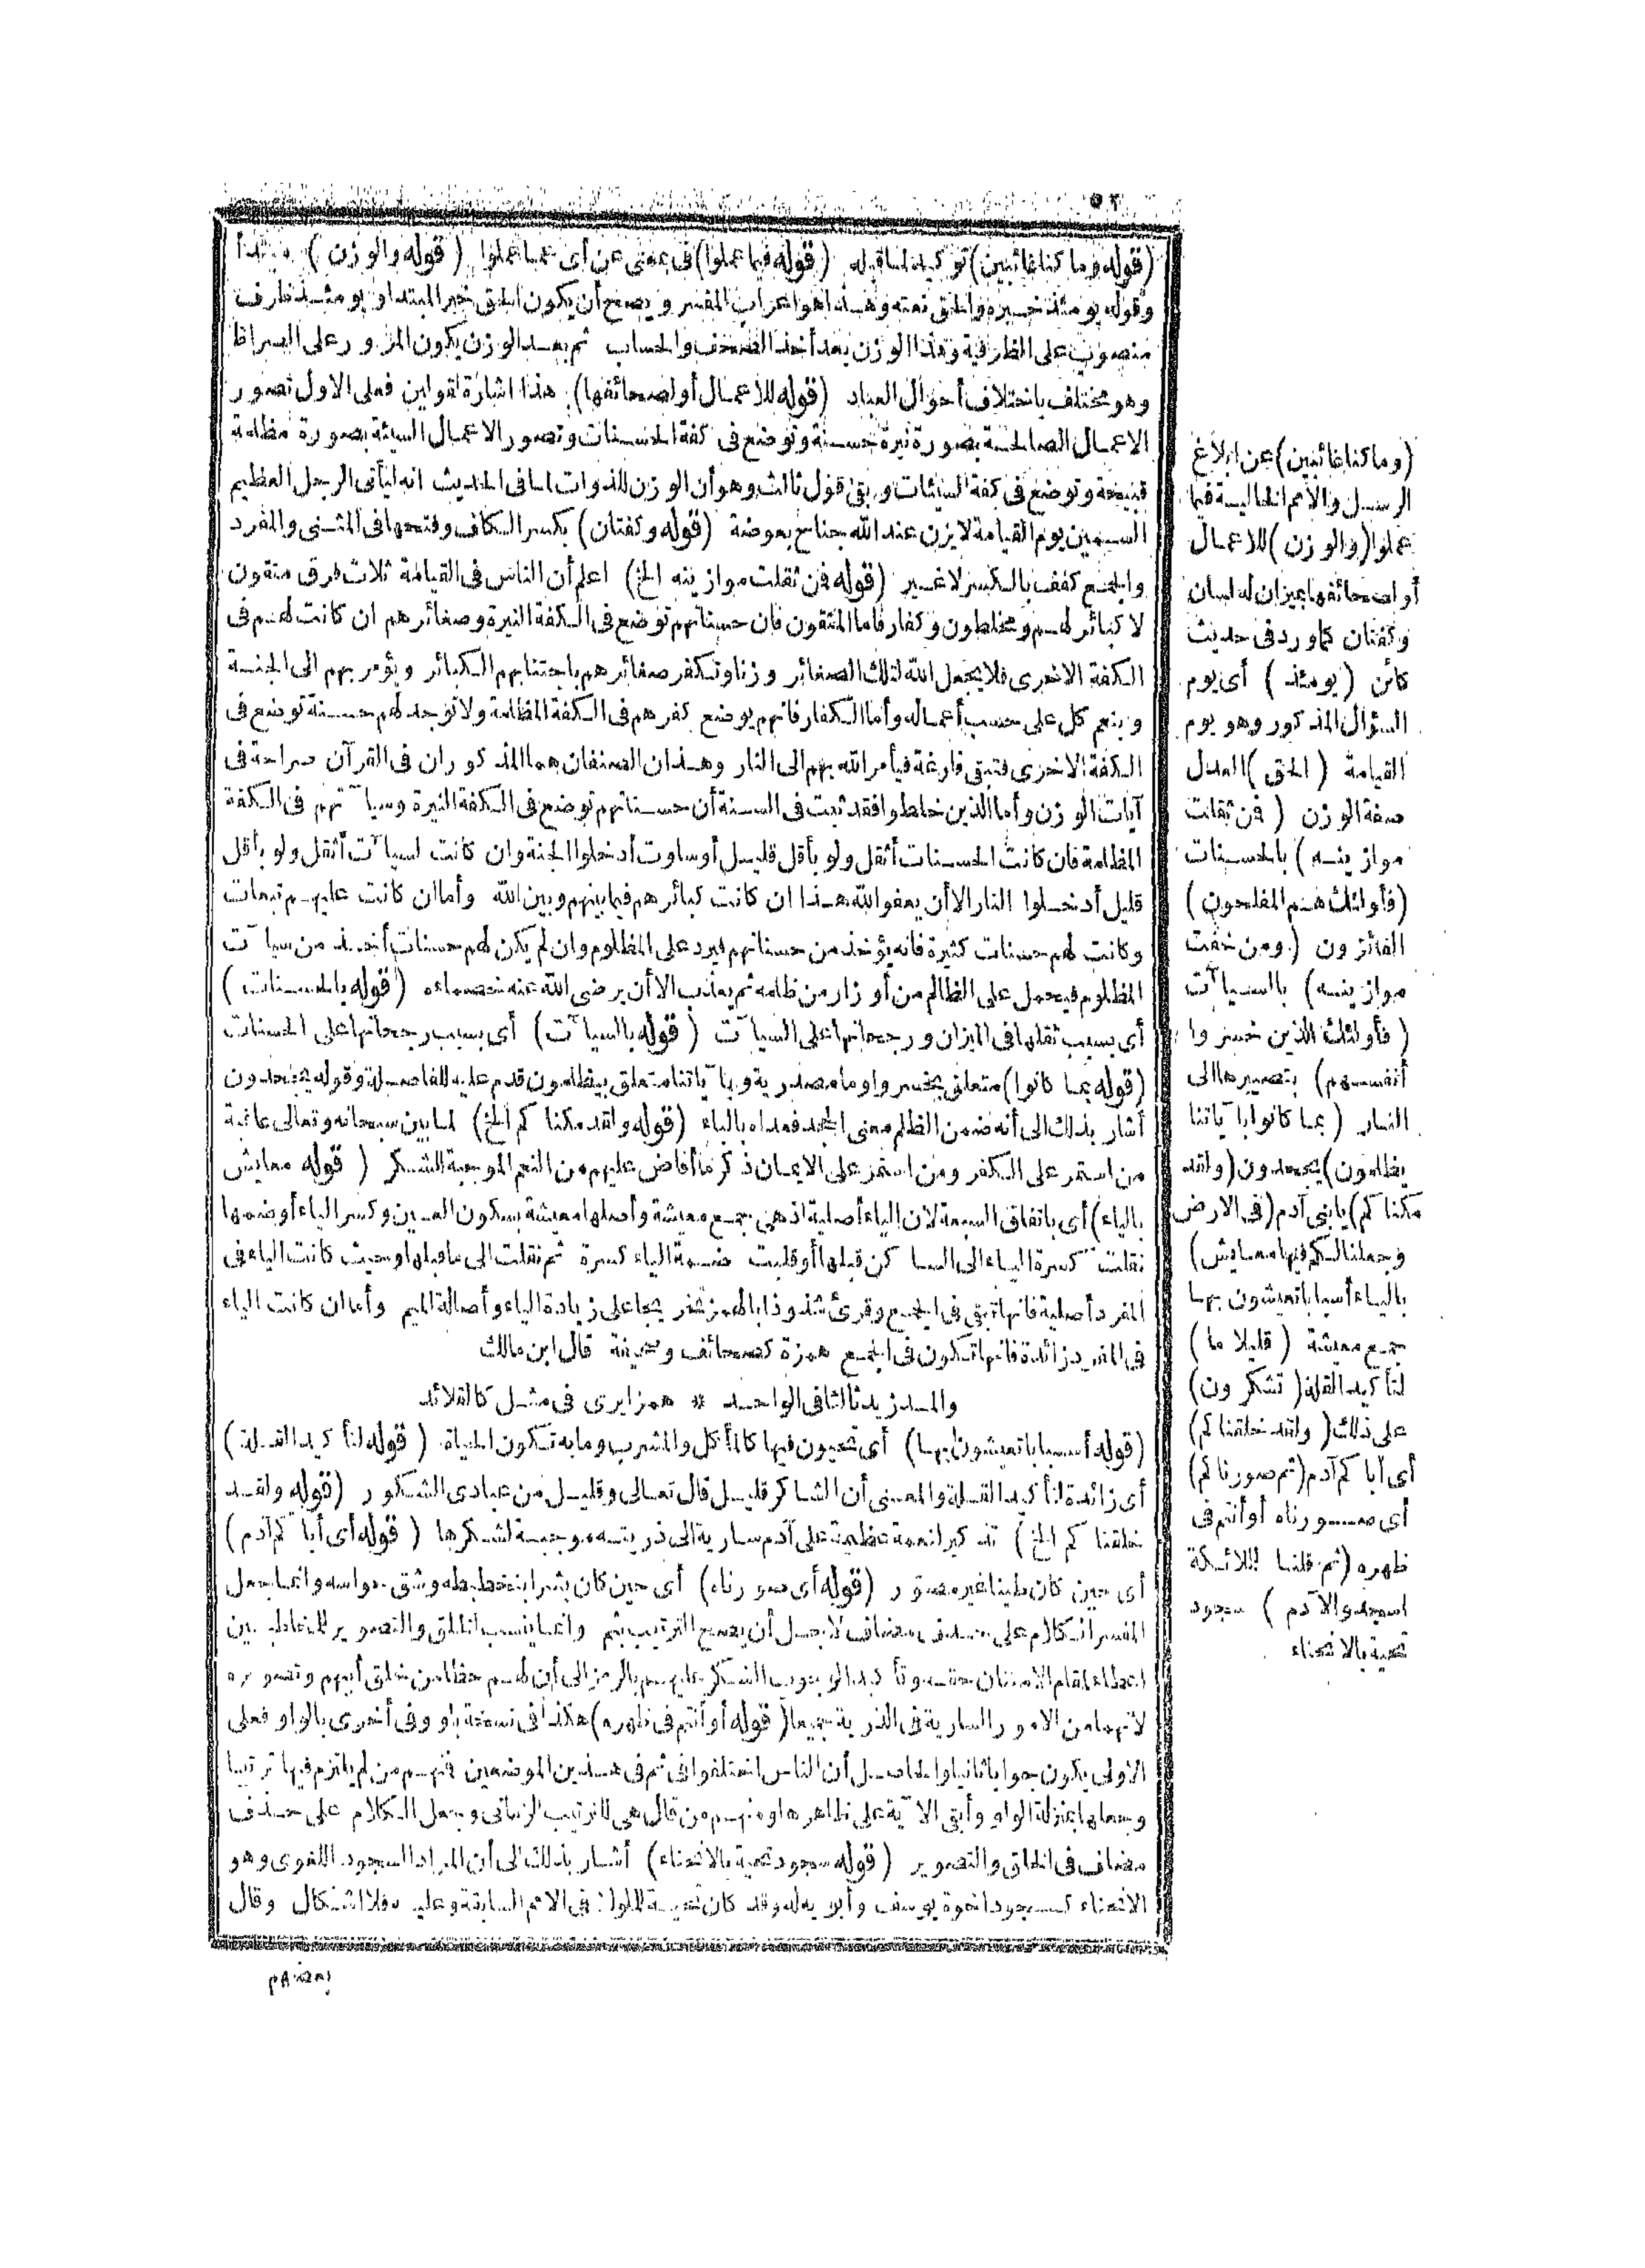 ٥٢
(قوله وما كنا غائبين) توكيد لما قبله (قوله فيما عملوا) فى بمعنى عن أى عما عملوا (قوله والوزن) مبتدأ
وقوله يومئذ خبره والحق نعته وهذا هو اعراب المفسر ويصح أن يكون الحق خبر المبتدا ويومئذ ظرف
منصوب على الظرفية وهذا الوزن بعد أخذ الصحف والحساب ثم بعد الوزن يكون المرور على الصراط
وهو مختلف باختلاف أحوال العباد (قوله للاعمال أو لصحائفها) هذا اشارة لقولين فعلى الاول تصور
الاعمال الصالحة بصورة نيرة حسنة وتوضع فى كفة الحسنات وتصور الاعمال السيئة بصورة مظلمة
قبيحة وتوضع فى كفة السيئات وبقى قول ثالث وهو أن الوزن للذوات لما فى الحديث انه ليأتى الرجل العظيم
السمين يوم القيامة لا يزن عند الله جناح بعوضة (قوله وكفتان) بكسر الكاف وفتحها فى المثنى والمفرد
والجمع كفف بالكسر لا غير (قوله فمن ثقلت موازينه الخ) اعلم أن الناس فى القيامة ثلاث فرق متقون
لا كبائر لهم ومخلطون وكفار فاما المتقون فان حسناتهم توضع فى الكفة النيرة وصغائرهم ان كانت لهم فى
الكفة الاخرى فلا يجعل الله لتلك الصغائر وزنا وتكفر صغائرهم باجتنابهم الكبائر ويؤمر بهم الى الجنة
وينعم كل على حسب أعماله وأما الكفار فانهم يوضع كفرهم فى الكفة المظلمة ولا توجد لهم حسنة توضع فى
الكفة الاخرى فتبقى فارغة فيأمر الله بهم الى النار وهذان الصنفان هما المذكوران فى القرآن صراحة فى
آيات الوزن وأما الذين خلطوا فقد ثبت فى السنة أن حسناتهم توضع فى الكفة النيرة وسيآتهم فى الكفة
المظلمة فان كانت الحسنات أثقل ولو بأقل قليل أو ساوت أدخلوا الجنة وان كانت السيآت أثقل ولو بأقل
قليل أدخلوا النار الا أن يعفو الله هذا ان كانت كبائرهم فيما بينهم وبين الله وأما ان كانت عليهم تبعات
وكانت لهم حسنات كثيرة فانه يؤخذ من حسناتهم فيرد على المظلوم وان لم يكن لهم حسنات أخذ من سيآت
المظلوم فيحمل على الظالم من أوزار من ظلمه ثم يعذب الا أن يرضى الله عنه خصماءه (قوله بالحسنات)
أى بسبب ثقلها فى الميزان ورجحانها على السيآت (قوله بالسيآت) أى بسبب رجحانها على الحسنات
(قوله بما كانوا) متعلق بخسروا وما مصدرية وبآياتنا متعلق بيظلمون قدم عليه للفاصلة وقوله يجحدون
أشار بذلك الى أنه ضمن الظلم معنى الجحد فعداه بالباء (قوله ولقد مكناكم الخ) لما بين سبحانه وتعالى عاقبة
من استمر على الكفر ومن استمر على الايمان ذكر ما أفاض عليهم من النعم الموجبة للشكر (قوله معايش
بالياء) أى باتفاق السبعة لان الياء أصلية اذ هى جمع معيشة وأصلها معيشة بسكون العين وكسر الياء أو ضمها
نقلت كسرة الياء الى الساكن قبلها أو قلبت ضمة الياء كسرة ثم نقلت الى ما قبلها وحيث كانت الياء فى
المفرد أصلية فانها تبقى فى الجمع وقرئ شذوذا بالهمز تخريجا على زيادة الياء وأصالة الميم وأما ان كانت الياء
فى المفرد زائدة فانها تكون فى الجمع همزة كصحائف وصحيفة قال ابن مالك
والمد زيد ثالثا فى الواحد * همزا يرى فى مثل كالقلائد
(قوله أسبابا تعيشون بها) أى تحيون فيها كالمأكل والمشرب وما به تكون الحياة (قوله لتأكيد القلة)
أى زائدة لتأكيد القلة والمعنى أن الشاكر قليل قال تعالى وقليل من عبادى الشكور (قوله ولقد
خلقناكم الخ) تذكير لنعمة عظيمة على آدم سارية الى ذريته موجبة لشكرها (قوله أى أباكم آدم)
أى حين كان طينا غير مصور (قوله أى صورناه) أى حين كان بشرا بتخطيطه وشق حواسه وانما جعل
المفسر الكلام على حذف مضاف لاجل أن يصح الترتيب بثم وانما ينسب الخلق والتصوير للمخاطبين
اعطاء لمقام الامتنان حقه وتأكيدا لوجوب الشكر عليهم بالرمز الى أن لهم حظا من خلق أبيهم وتصويره
لانهما من الامور السارية فى الذرية جميعا (قوله أو أنتم فى ظهره) هكذا فى نسخة بأو وفى أخرى بالواو فعلى
الاولى يكون جوابا ثانيا والحاصل أن الناس اختلفوا فى ثم فى هذين الموضعين فمنهم من لم يلتزم فيها ترتيبا
وجعلها بمنزلة الواو وأبقى الآية على ظاهرها ومنهم من قال هى للترتيب الزمانى وجعل الكلام على حذف
مضاف فى الخلق والتصوير (قوله سجود تحية بالانحناء) أشار بذلك الى أن المراد السجود اللغوى وهو
الانحناء كسجود اخوة يوسف وأبويه له وقد كان تحية للملوك فى الامم السابقة وعليه فلا اشكال وقال
بعضهم
(وما كنا غائبين) عن ابلاغ
الرسل والامم الخالية فيما
عملوا (والوزن) للاعمال
أو لصحائفها بميزان له لسان
وكفتان كما ورد فى حديث
كائن (يومئذ) أى يوم
السؤال المذكور وهو يوم
القيامة (الحق) العدل
صفة الوزن (فمن ثقلت
موازينه) بالحسنات
(فأولئك هم المفلحون)
الفائزون (ومن خفت
موازينه) بالسيآت
(فأولئك الذين خسروا
أنفسهم) بتصييرها الى
النار (بما كانوا بآياتنا
يظلمون) يجحدون (ولقد
مكناكم) يا بنى آدم (فى الارض
وجعلنا لكم فيها معايش)
بالياء أسبابا تعيشون بها
جمع معيشة (قليلا ما)
لتأكيد القلة (تشكرون)
على ذلك (ولقد خلقناكم)
أى أباكم آدم (ثم صورناكم)
أى صورناه أو أنتم فى
ظهره (ثم قلنا للملائكة
اسجدوا لآدم) سجود
تحية بالانحناء